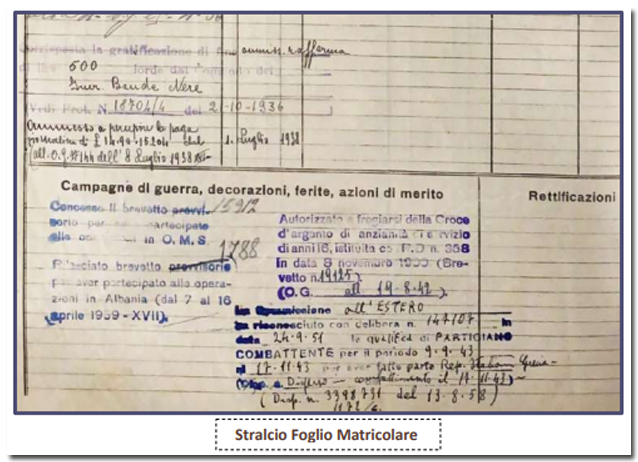 Corrisposta la gratificazione di fine
ammiss. rafferma
di L. 600 lorde dal Comando del
Incr. Bande Nere
(Vedi Prot. N. 18704/4 del 21-10-1936
Ammesso a percepire la paga
giornaliera di £ 14.90. dal
1. Luglio 1938
(all. O.G. N° 144 dell' 8 Luglio 1938
Campagne di guerra, decorazioni, ferite, azioni di merito
Rettificazioni
Concesso il brevetto provvi- 15912
sorio per aver partecipato
alle in O.M.S.
1788
Rilasciato brevetto provvisorio
per aver partecipato alle opera-
zioni in Albania (dal 7 al 16
aprile 1939 - XVII).
Autorizzato a fregiarsi della Croce
d'argento di anzianità di servizio
di anni 16, istituita co R.D n. 358
in data 8 novembre 19 (Bre-
vetto n. 19125).
(O.G. all. 19-8-42).
La Commissione all'ESTERO
ha riconosciuto con delibera n. 147107 in
data 24.9.51 la qualifica di PARTIGIANO
COMBATTENTE per il periodo 9-9-43
al 17-11-43 per aver fatto parte Rep. Italiani Grecia
Disperso — combattimento il 17-11-43)
(Disp. n. 3398731 del 13.8.58)
1172/c.
Stralcio Foglio Matricolare